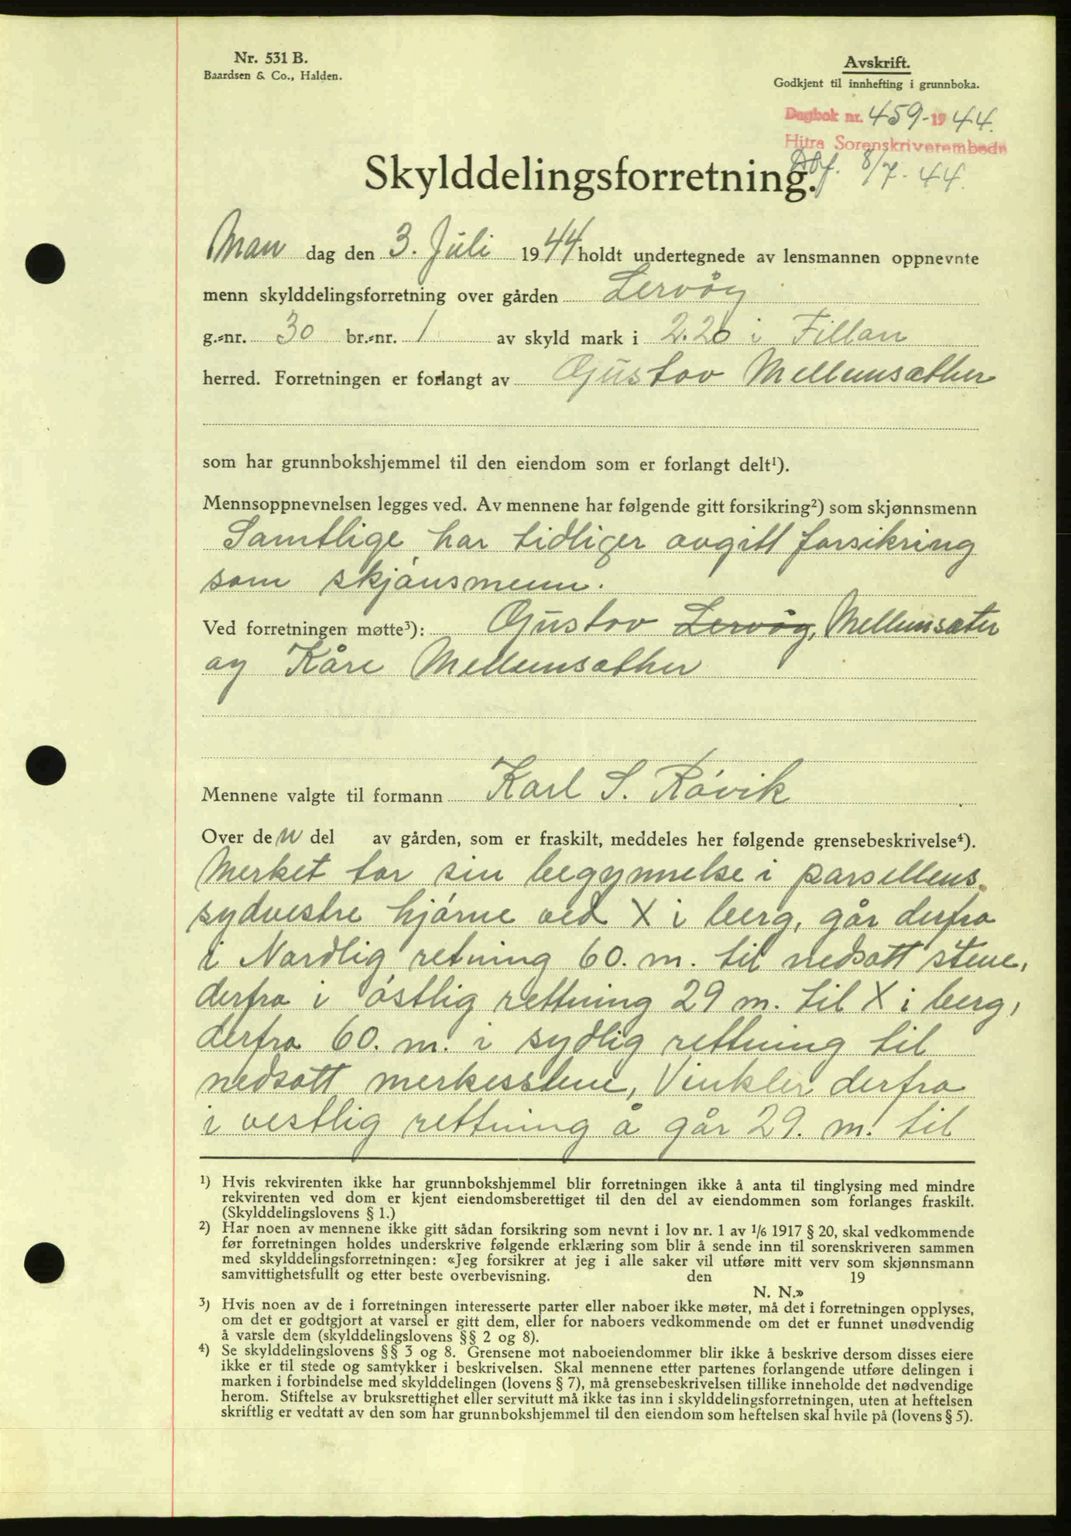 Nr. 531 B.
Baardsen & Co., Halden.
Avskrift.
Godkjent til innhefting i grunnboka.
Dagbok nr. 459-1944.
Hitra Sorenskriverembede
8/7-44.
Skylddelingsforretning.
Man dag den 3. Juli 1944 holdt undertegnede av lensmannen oppnevnte
menn skylddelingsforretning over gården Lervåg
g.-nr. 30 br.-nr. 1 av skyld mark i 2.20 i Fillan
herred. Forretningen er forlangt av Gjustov Mellemsæther
som har grunnbokshjemmel til den eiendom som er forlangt delt¹).
Mennsoppnevnelsen legges ved. Av mennene har følgende gitt forsikring²) som skjønnsmenn
Samtlige har tidliger avgitt forsikring
som skjönsmenn.
Ved forretningen møtte³): Gjustov Lervåg, Mellemsæter
og Kåre Mellemsæther
Mennene valgte til formann Karl S. Rövik
Over den del av gården, som er fraskilt, meddeles her følgende grensebeskrivelse⁴).
Merket tar sin begynnelse i parsellens
sydvestre hjörne ved X i berg, går derfra
i Nordlig retning 60. m. til nedsatt stene,
derfra i östlig rettning 29 m. til X i berg,
derfra 60. m. i sydlig rettning til
nedsatt merkesstene, Vinkler derfra
i vestlig rettning å går 29. m. til
¹) Hvis rekvirenten ikke har grunnbokshjemmel blir forretningen ikke å anta til tinglysing med mindre
rekvirenten ved dom er kjent eiendomsberettiget til den del av eiendommen som forlanges fraskilt.
(Skylddelingslovens § 1.)
²) Har noen av mennene ikke gitt sådan forsikring som nevnt i lov nr. 1 av 1/6 1917 § 20, skal vedkommende
før forretningen holdes underskrive følgende erklæring som blir å sende inn til sorenskriveren sammen
med skylddelingsforretningen: «Jeg forsikrer at jeg i alle saker vil utføre mitt verv som skjønnsmann
samvittighetsfullt og etter beste overbevisning. den 19
N. N.»
³) Hvis noen av de i forretningen interesserte parter eller naboer ikke møter, må det i forretningen opplyses,
om det er godtgjort at varsel er gitt dem, eller for naboers vedkommende om det er funnet unødvendig
å varsle dem (skylddelingslovens §§ 2 og 8).
⁴) Se skylddelingslovens §§ 3 og 8. Grensene mot naboeiendommer blir ikke å beskrive dersom disses eiere
ikke er til stede og samtykker i beskrivelsen. Skal mennene etter partenes forlangende utføre delingen i
marken i forbindelse med skylddelingen (lovens § 7), må grensebeskrivelsen tillike inneholde det nødvendige
herom. Stiftelse av bruksrettighet eller servitutt må ikke tas inn i skylddelingsforretningen, uten at heftelsen
skriftlig er vedtatt av den som har grunnbokshjemmel til den eiendom som heftelsen skal hvile på (lovens § 5).